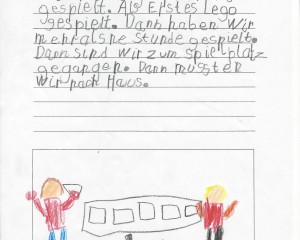 gespielt. Als Erstes Lego
gespielt. Dann haben Wir
mehralsne Stunde gespielt.
Dann sind wir zum spielplatz
gegangen. Dann mussten
wir nach Haus.